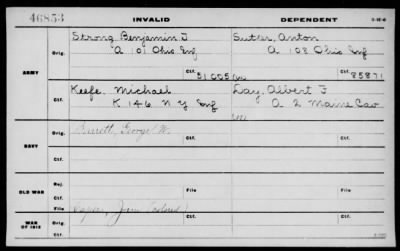 46853 INVALID DEPENDENT
Strong, Benjamin J Sutter, Anton
Orig. A 101 Ohio Inf A 108 Ohio Inf
Ctf. 51005 Ctf. 85871
ARMY
Keefe, Michael Day, Albert F
Orig. K 146 N Y Inf A 2 Maine Cav
Ctf.
Orig. Barrett, George W. Orig.
NAVY
Ctf. Ctf.
Rej.
OLD WAR Ctf. File File
Orig. Jim (colored) Orig. Ctf.
WAR OF 1812
Ctf. File